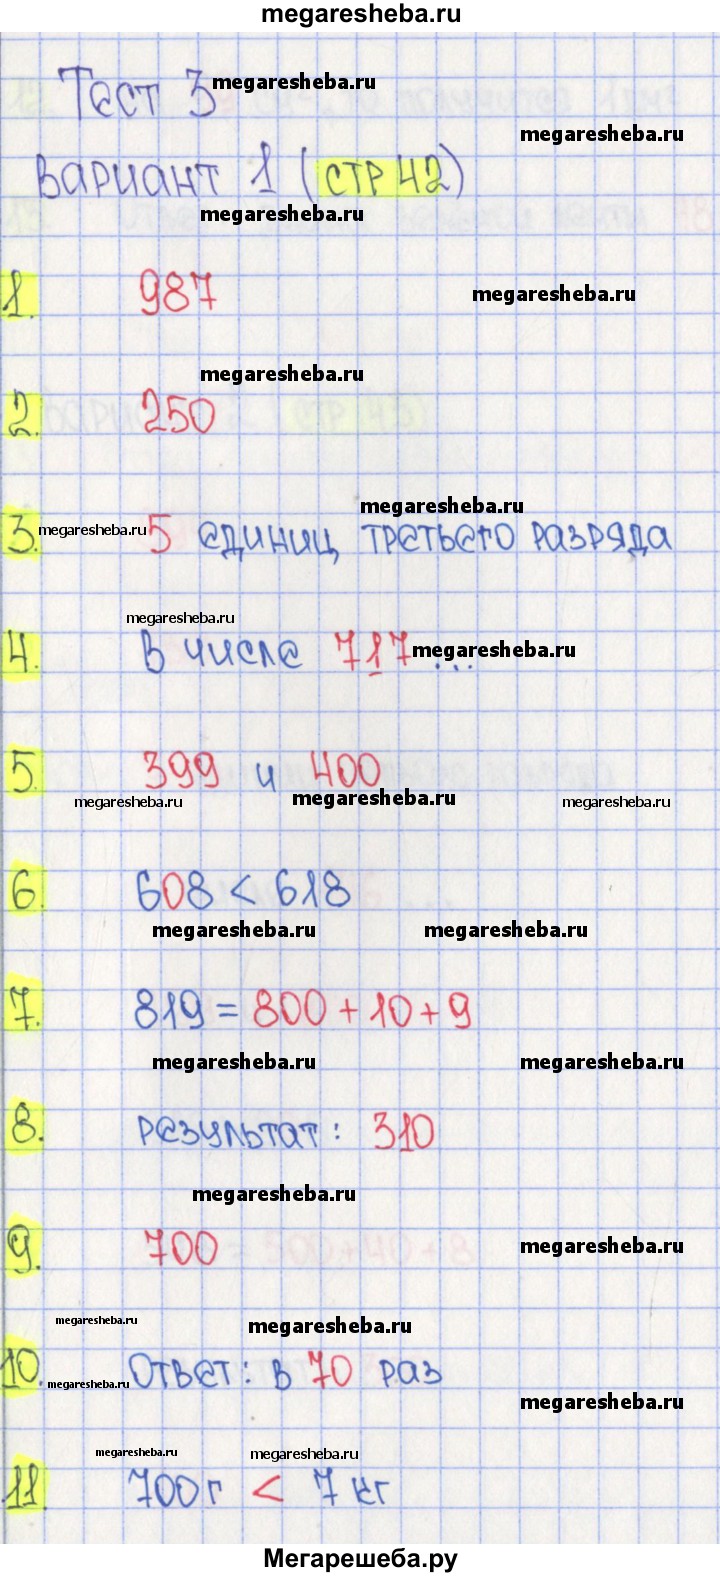 megaresheba.ru
Тест 3 megaresheba.ru
megaresheba.ru
Вариант 1 (стр 42)
megaresheba.ru
1. 987 megaresheba.ru
megaresheba.ru
2. 250
megaresheba.ru
3. megaresheba.ru 5 единиц третьего разряда
megaresheba.ru
4. В числе 717 ... megaresheba.ru
5. 399 и 400
megaresheba.ru megaresheba.ru megaresheba.ru
6. 608 < 618
megaresheba.ru megaresheba.ru
7. 819 = 800 + 10 + 9
megaresheba.ru megaresheba.ru
8. результат: 310
megaresheba.ru
9. 700 megaresheba.ru
megaresheba.ru megaresheba.ru
10. Ответ: в 70 раз
megaresheba.ru megaresheba.ru
megaresheba.ru megaresheba.ru
11. 700 г < 7 кг
Мегарешеба.ру